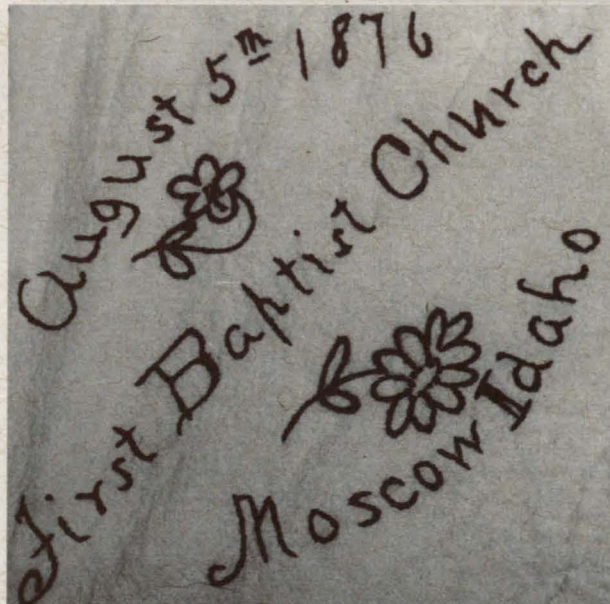 August 5th 1876
First Baptist Church
Moscow Idaho